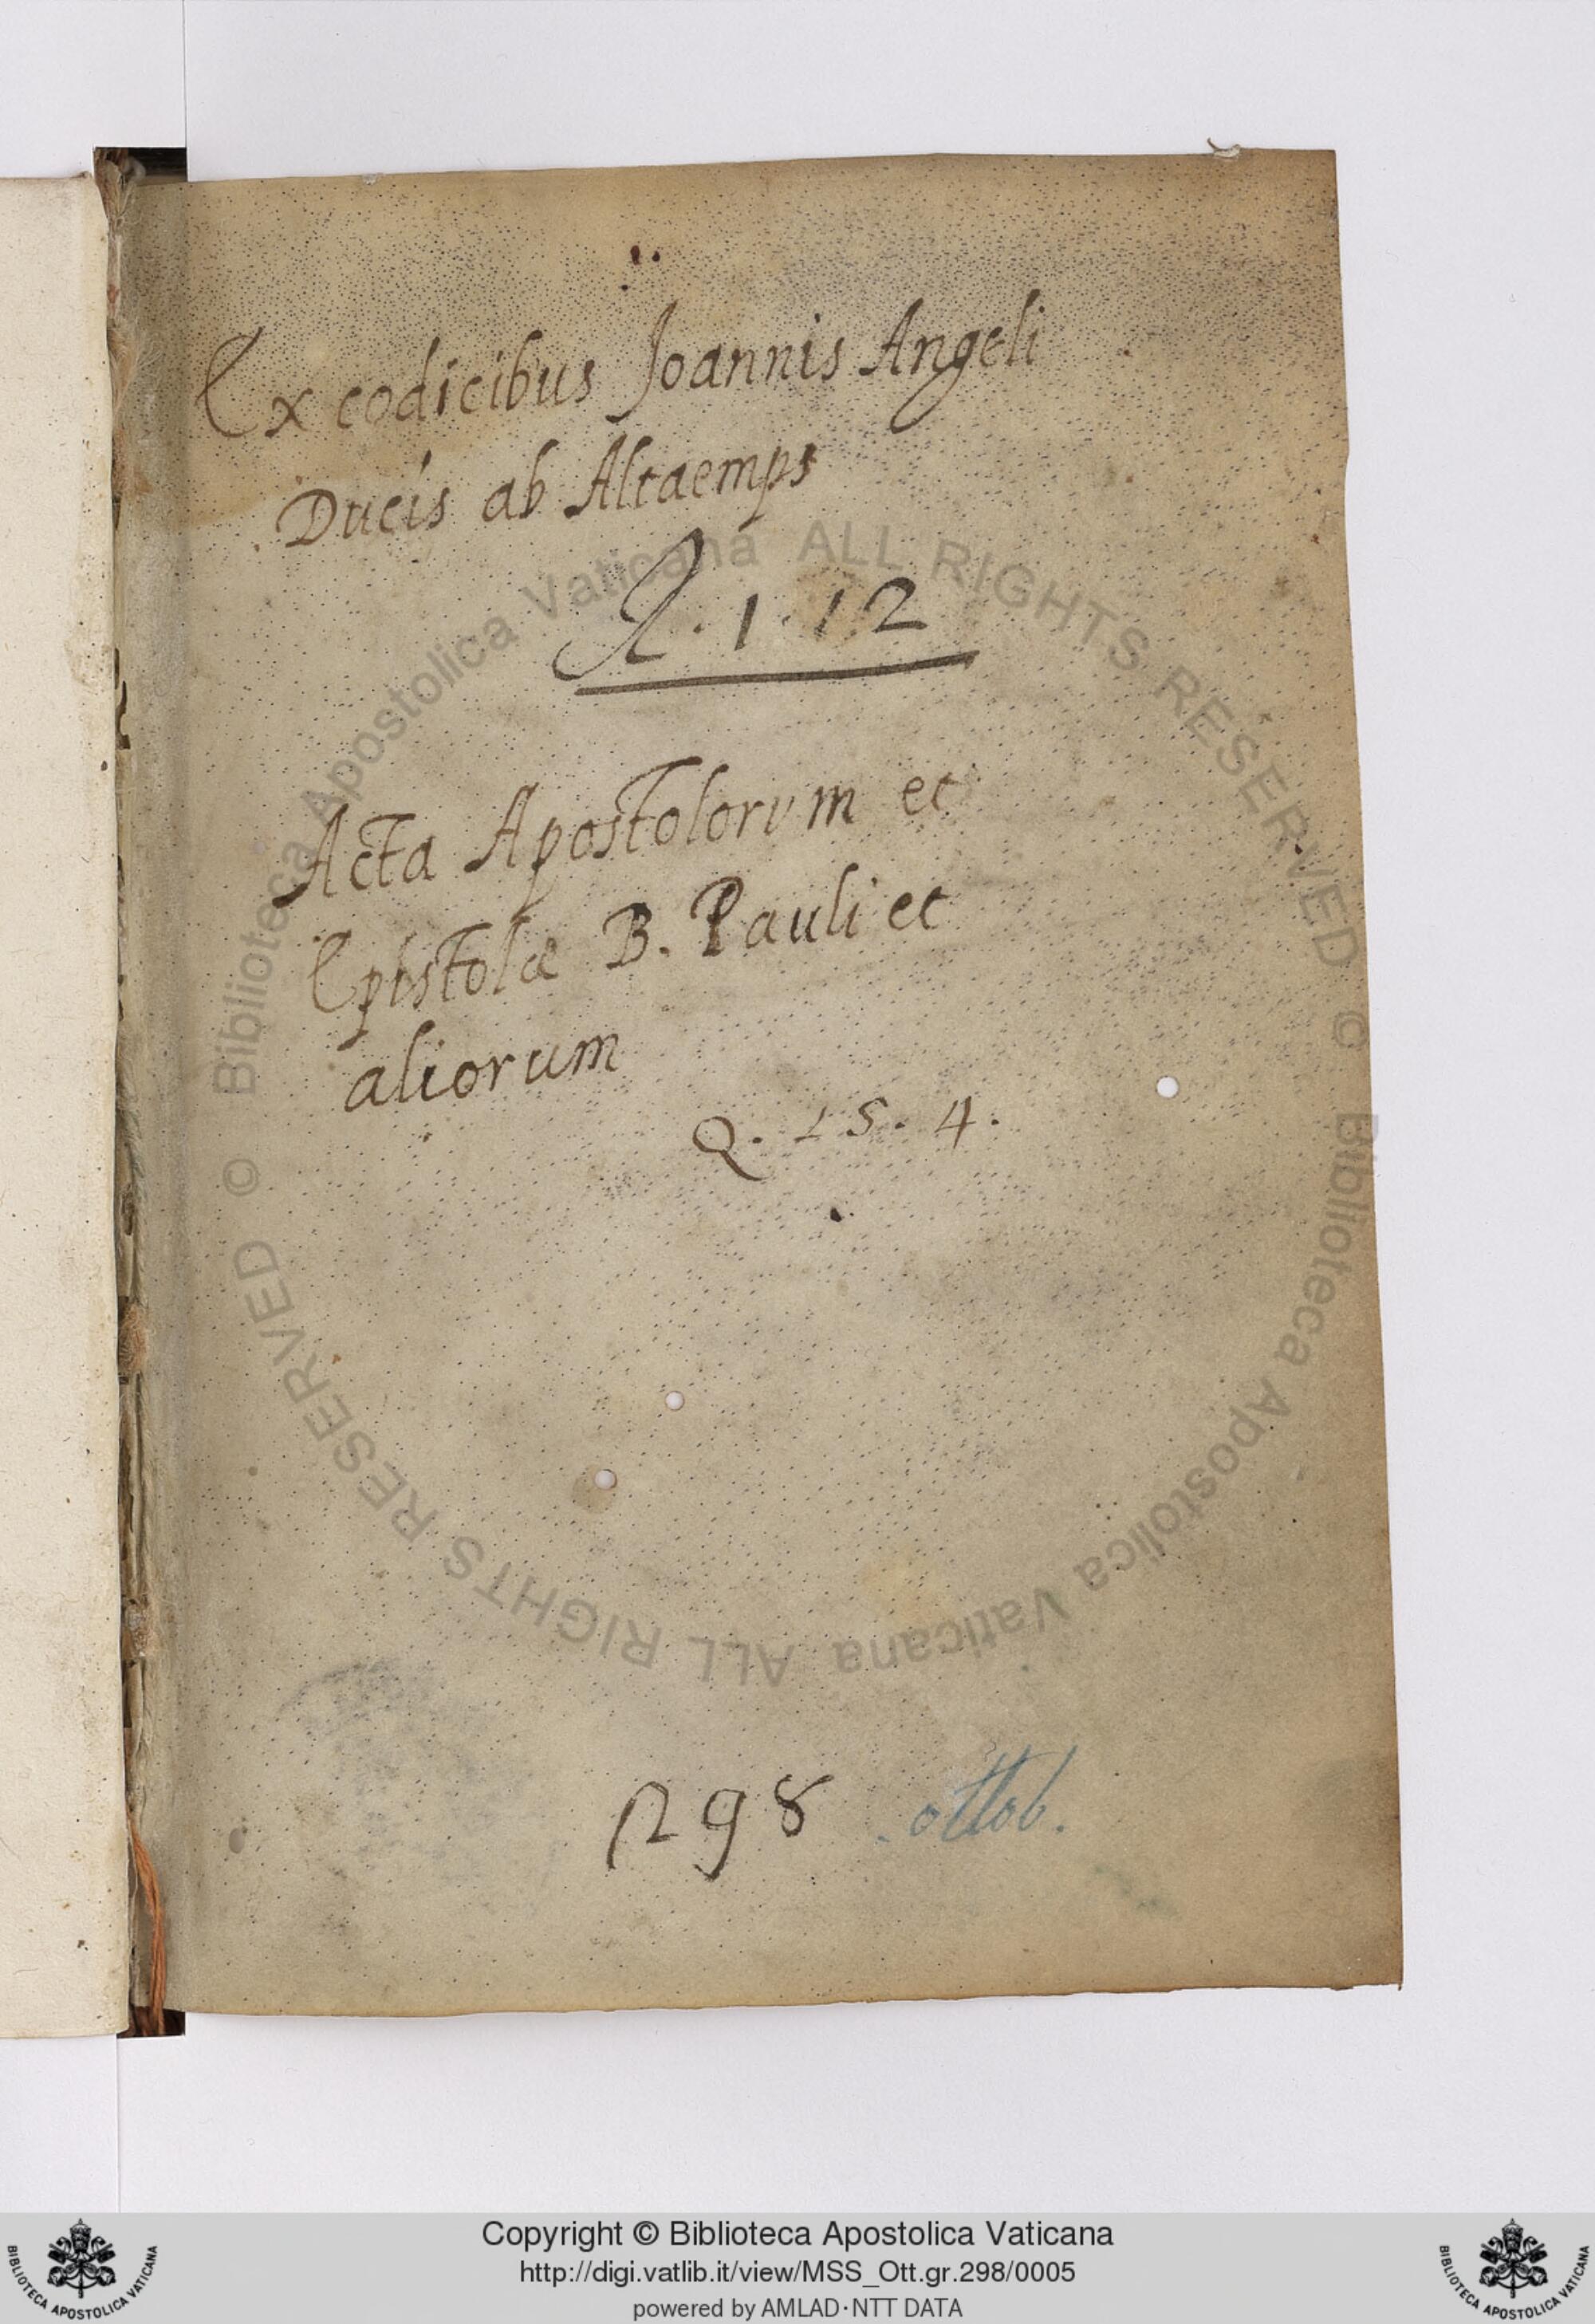 Ex codicibus Joannis Angeli
Ducis ab Altaemps
R. 1. 12
Acta Apostolorum et
Epistolæ B. Pauli et
aliorum
Q. 15. 4.
298 .ottob.
© Biblioteca Apostolica Vaticana ALL RIGHTS RESERVED © Biblioteca Apostolica Vaticana ALL RIGHTS RESERVED
Copyright © Biblioteca Apostolica Vaticana
http://digi.vatlib.it/view/MSS_Ott.gr.298/0005
powered by AMLAD·NTT DATA
BIBLIOTECA APOSTOLICA VATICANA
BIBLIOTECA APOSTOLICA VATICANA